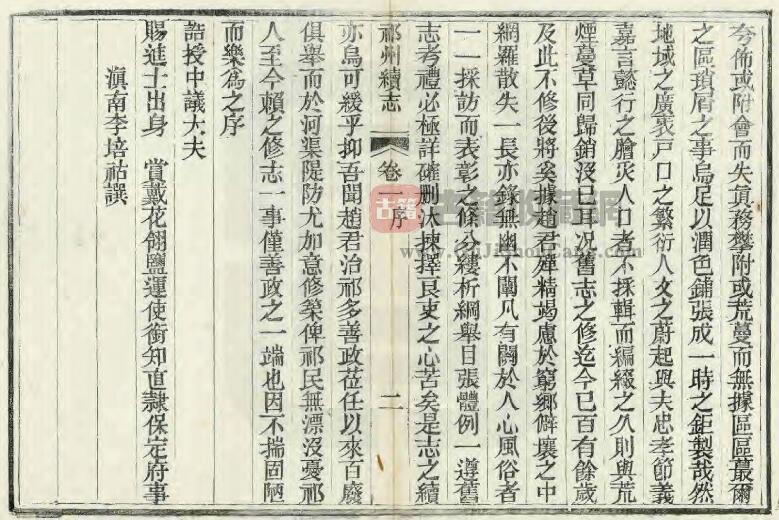 夸佈或附會而失眞務攀附或荒蔓而無據區區蕞爾
之區瑣屑之事烏足以潤色鋪張成一時之鉅製哉然
地域之廣袤戸口之繁衍人文之蔚起與夫忠孝節義
嘉言懿行之膾炙人口者不採輯而編綴之久則與荒
煙蔓草同歸銷沒已耳况舊志之修迄今已百有餘歲
及此不修後將奚據趙君殫精竭慮於窮鄉僻壤之中
網羅散失一長亦錄無幽不闡凡有關於人心風俗者
一一採訪而表彰之條分縷析綱舉目張體例一遵舊
志考禮必極詳確刪汰揀擇良吏之心苦矣是志之續
祁州續志 卷一序 二
亦烏可緩乎抑吾聞趙君治祁多善政莅任以來百廢
俱舉而於河渠隄防尤加意修築俾祁民無漂沒憂祁
人至今賴之修志一事僅善政之一端也因不揣固陋
而樂爲之序
誥授中議大夫
賜進士出身 賞戴花翎鹽運使銜知直隷保定府事
滇南李培祜譔
古籍 古籍收藏網
www.GuJiShouCang.com